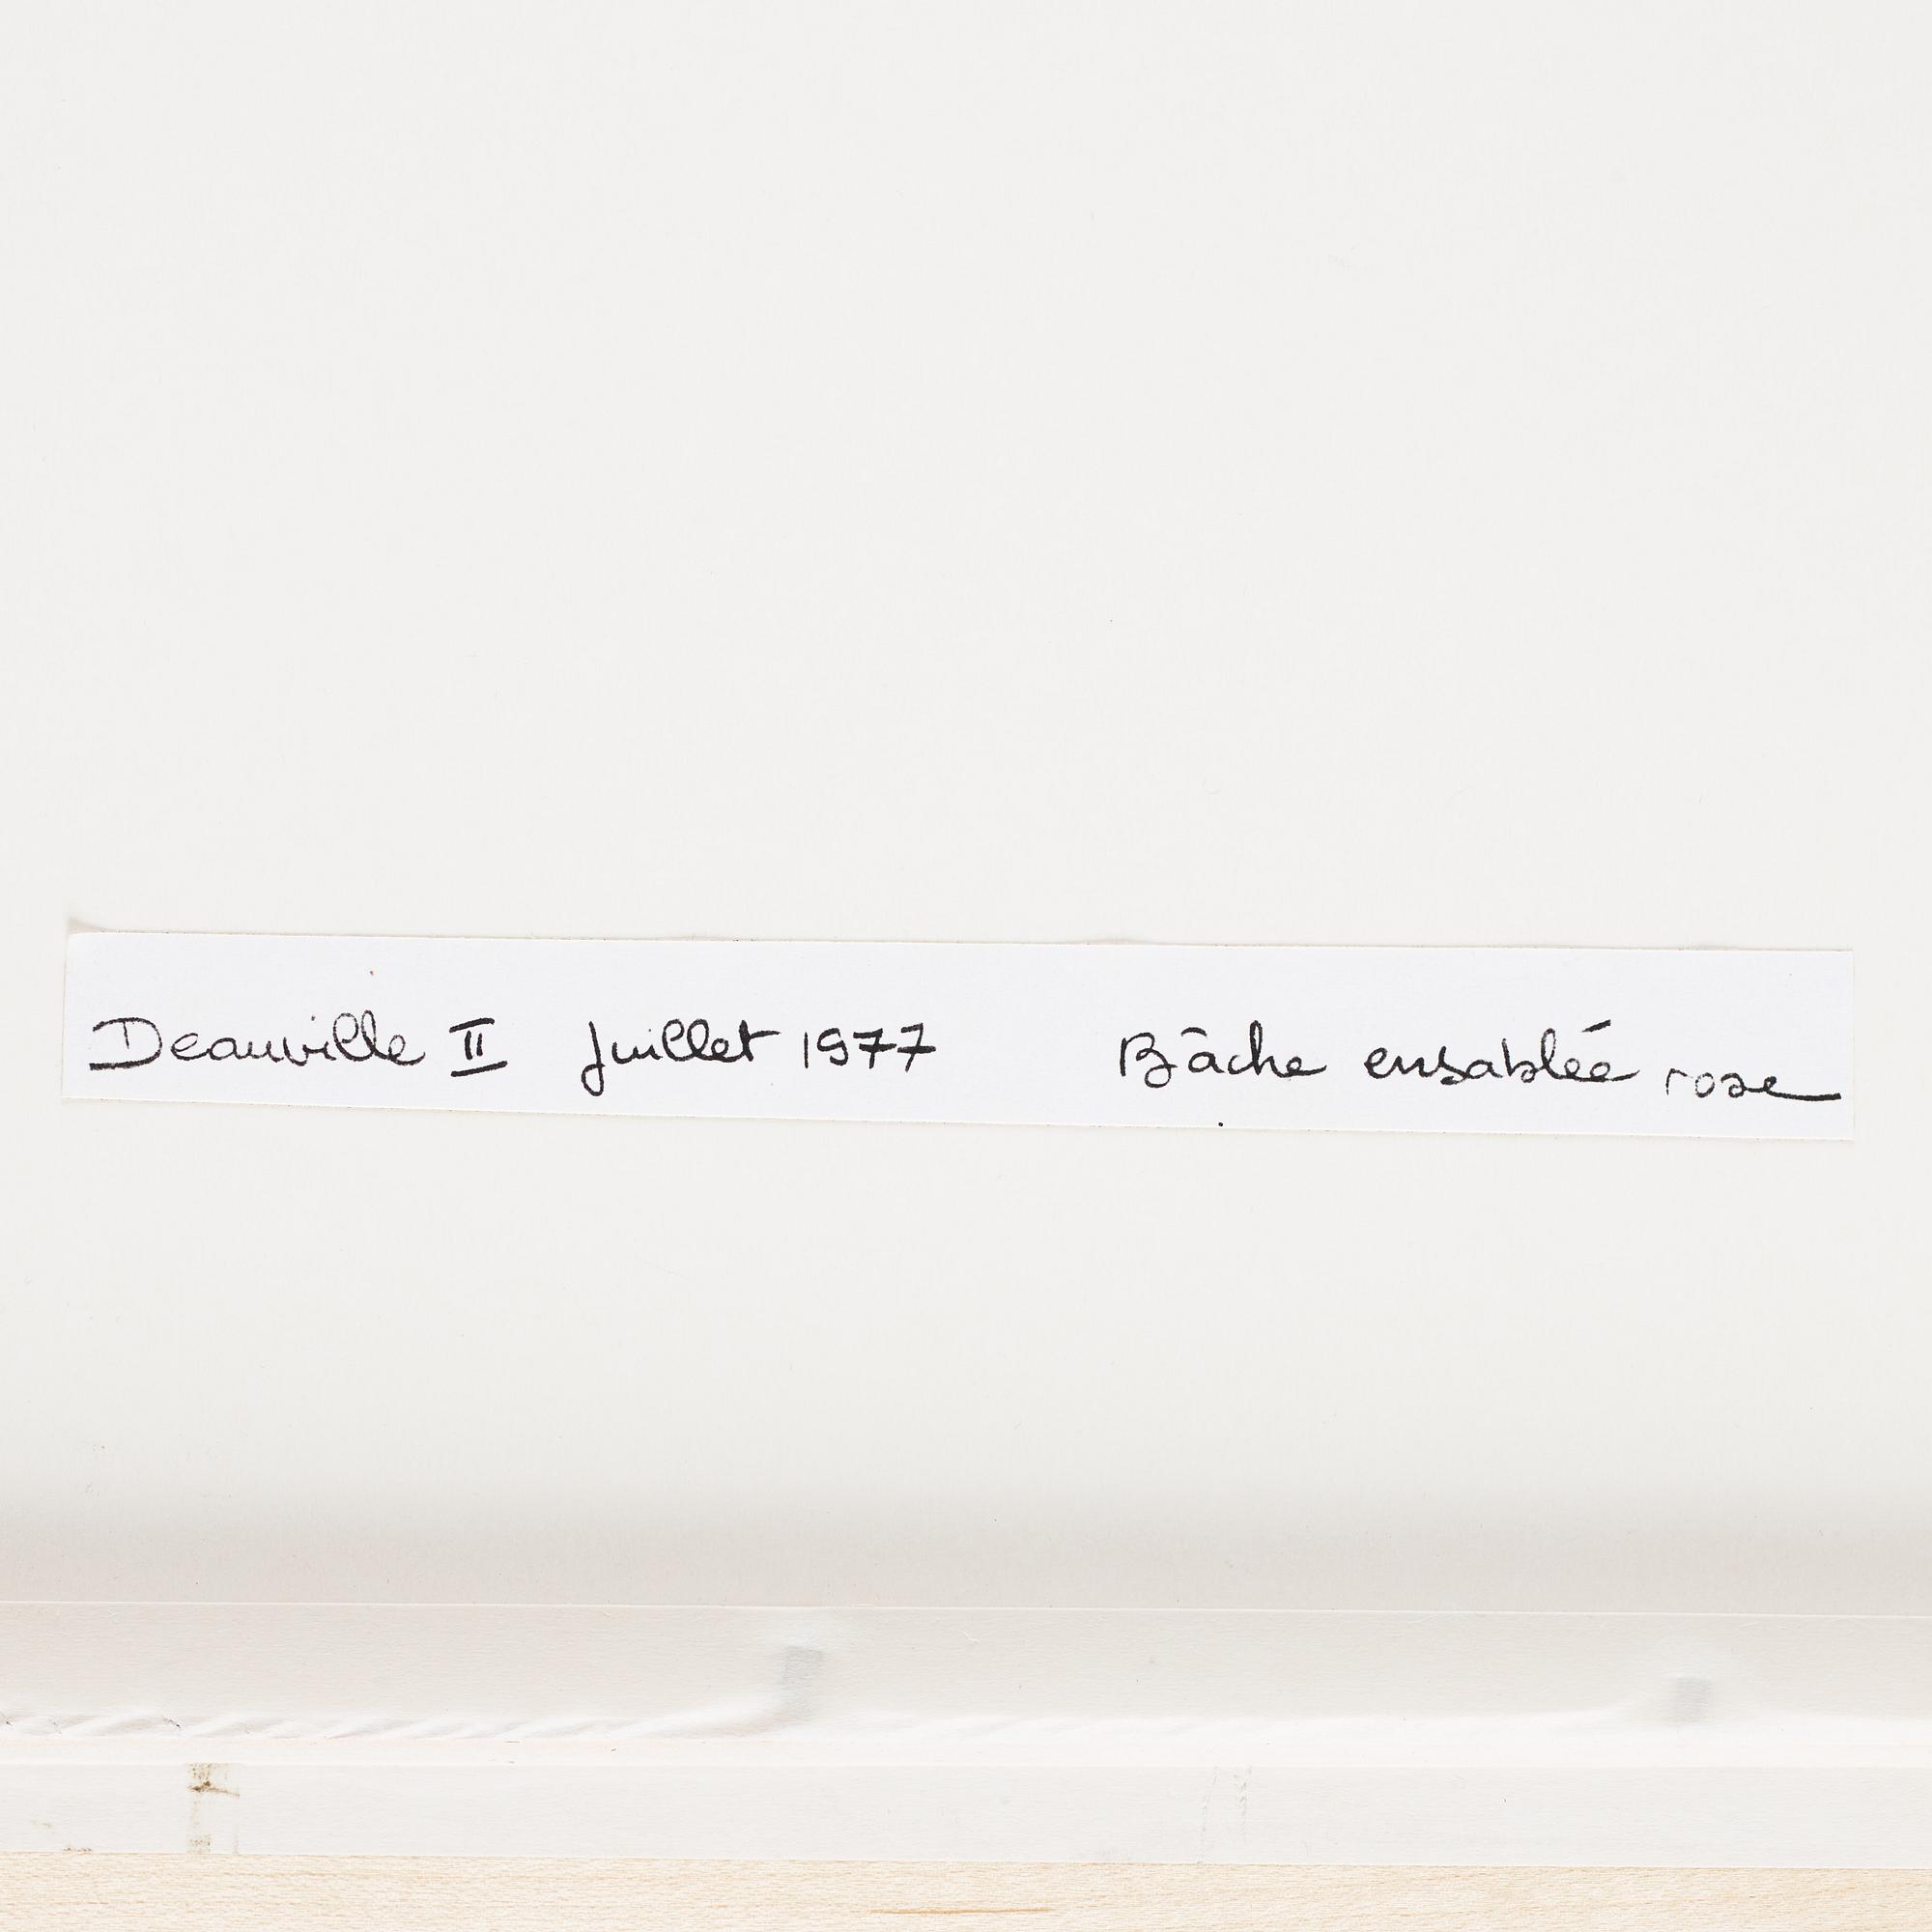 Deauville II Juillet 1977 Bâche ensablée rose